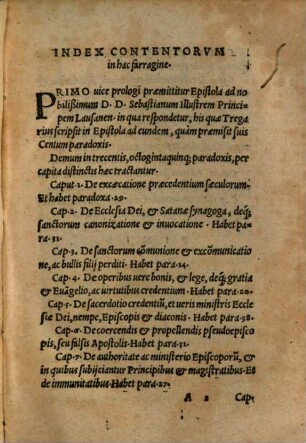 INDEX CONTENTORVM
in hac farragine.
PRIMO uice prologi præmittitur Epistola ad no
bilißimum D. D. Sebastianum Illustrem Princi-
pem Lausanen. in qua respondetur, his quæ Trega
rius scripsit in Epistola ad eundem, quàm præmisit suis
Centum paradoxis.
Demum in trecentis, octogintaquinq; paradoxis, per
capita distinctis hæc tractantur.
Caput 1. De excæcatione præcedentium sæculorum.
Et habet paradoxa.29.
Cap.2. De Ecclesia Dei, & Satanæ synagoga, deq;
sanctorum canonizatione & inuocatione. Habet pa-
ra.32.
Cap.3. De sanctorum cōmunione & excōmunicatio
ne, ac bullis filij perditi. Habet para.24.
Cap.4. De operibus uere bonis, & lege, deq; gratia
& Euāgelio, ac uirtutibus credentium. Habet para.20.
Cap.5. De sacerdotio credentiū, et ueris ministris Eccle
siæ Dei, nempe, Episcopis & diaconis. Habet para.38.
Cap.6. De coercendis & propellendis pseudoepisco
pis, seu falsis Apostolis. Habet para.
Cap.7. De authoritate ac ministerio Episcoporū, &
in quibus subijciantur Principibus & magistratibus. Et
de immunitatibus. Habet para.27.
A 2 Cap;